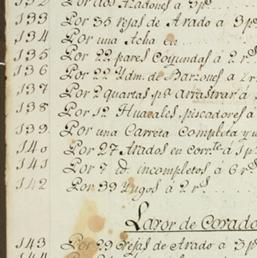 132 Por dos Azadones á 3 ps
133 Por 35 rejas de Arado á 3 ps
134 Por una Acha en
135 Por 22 pares Coyundas á 2 rs
136 Por 22 Ydm. de á 2 r
137 Por 2 quartas pa. arrastrar á
138 Por 12 pescadores á
139 Por una Carreta Completa y u
140 Por 27 Arados en corrte. á 1 p
141 Por 7 id. incompletos á 6 rs
142 Por 39 Yugos á 2 rs
Lavor de Corado
143 Por 29 rejas de Arado á 3 ps
144